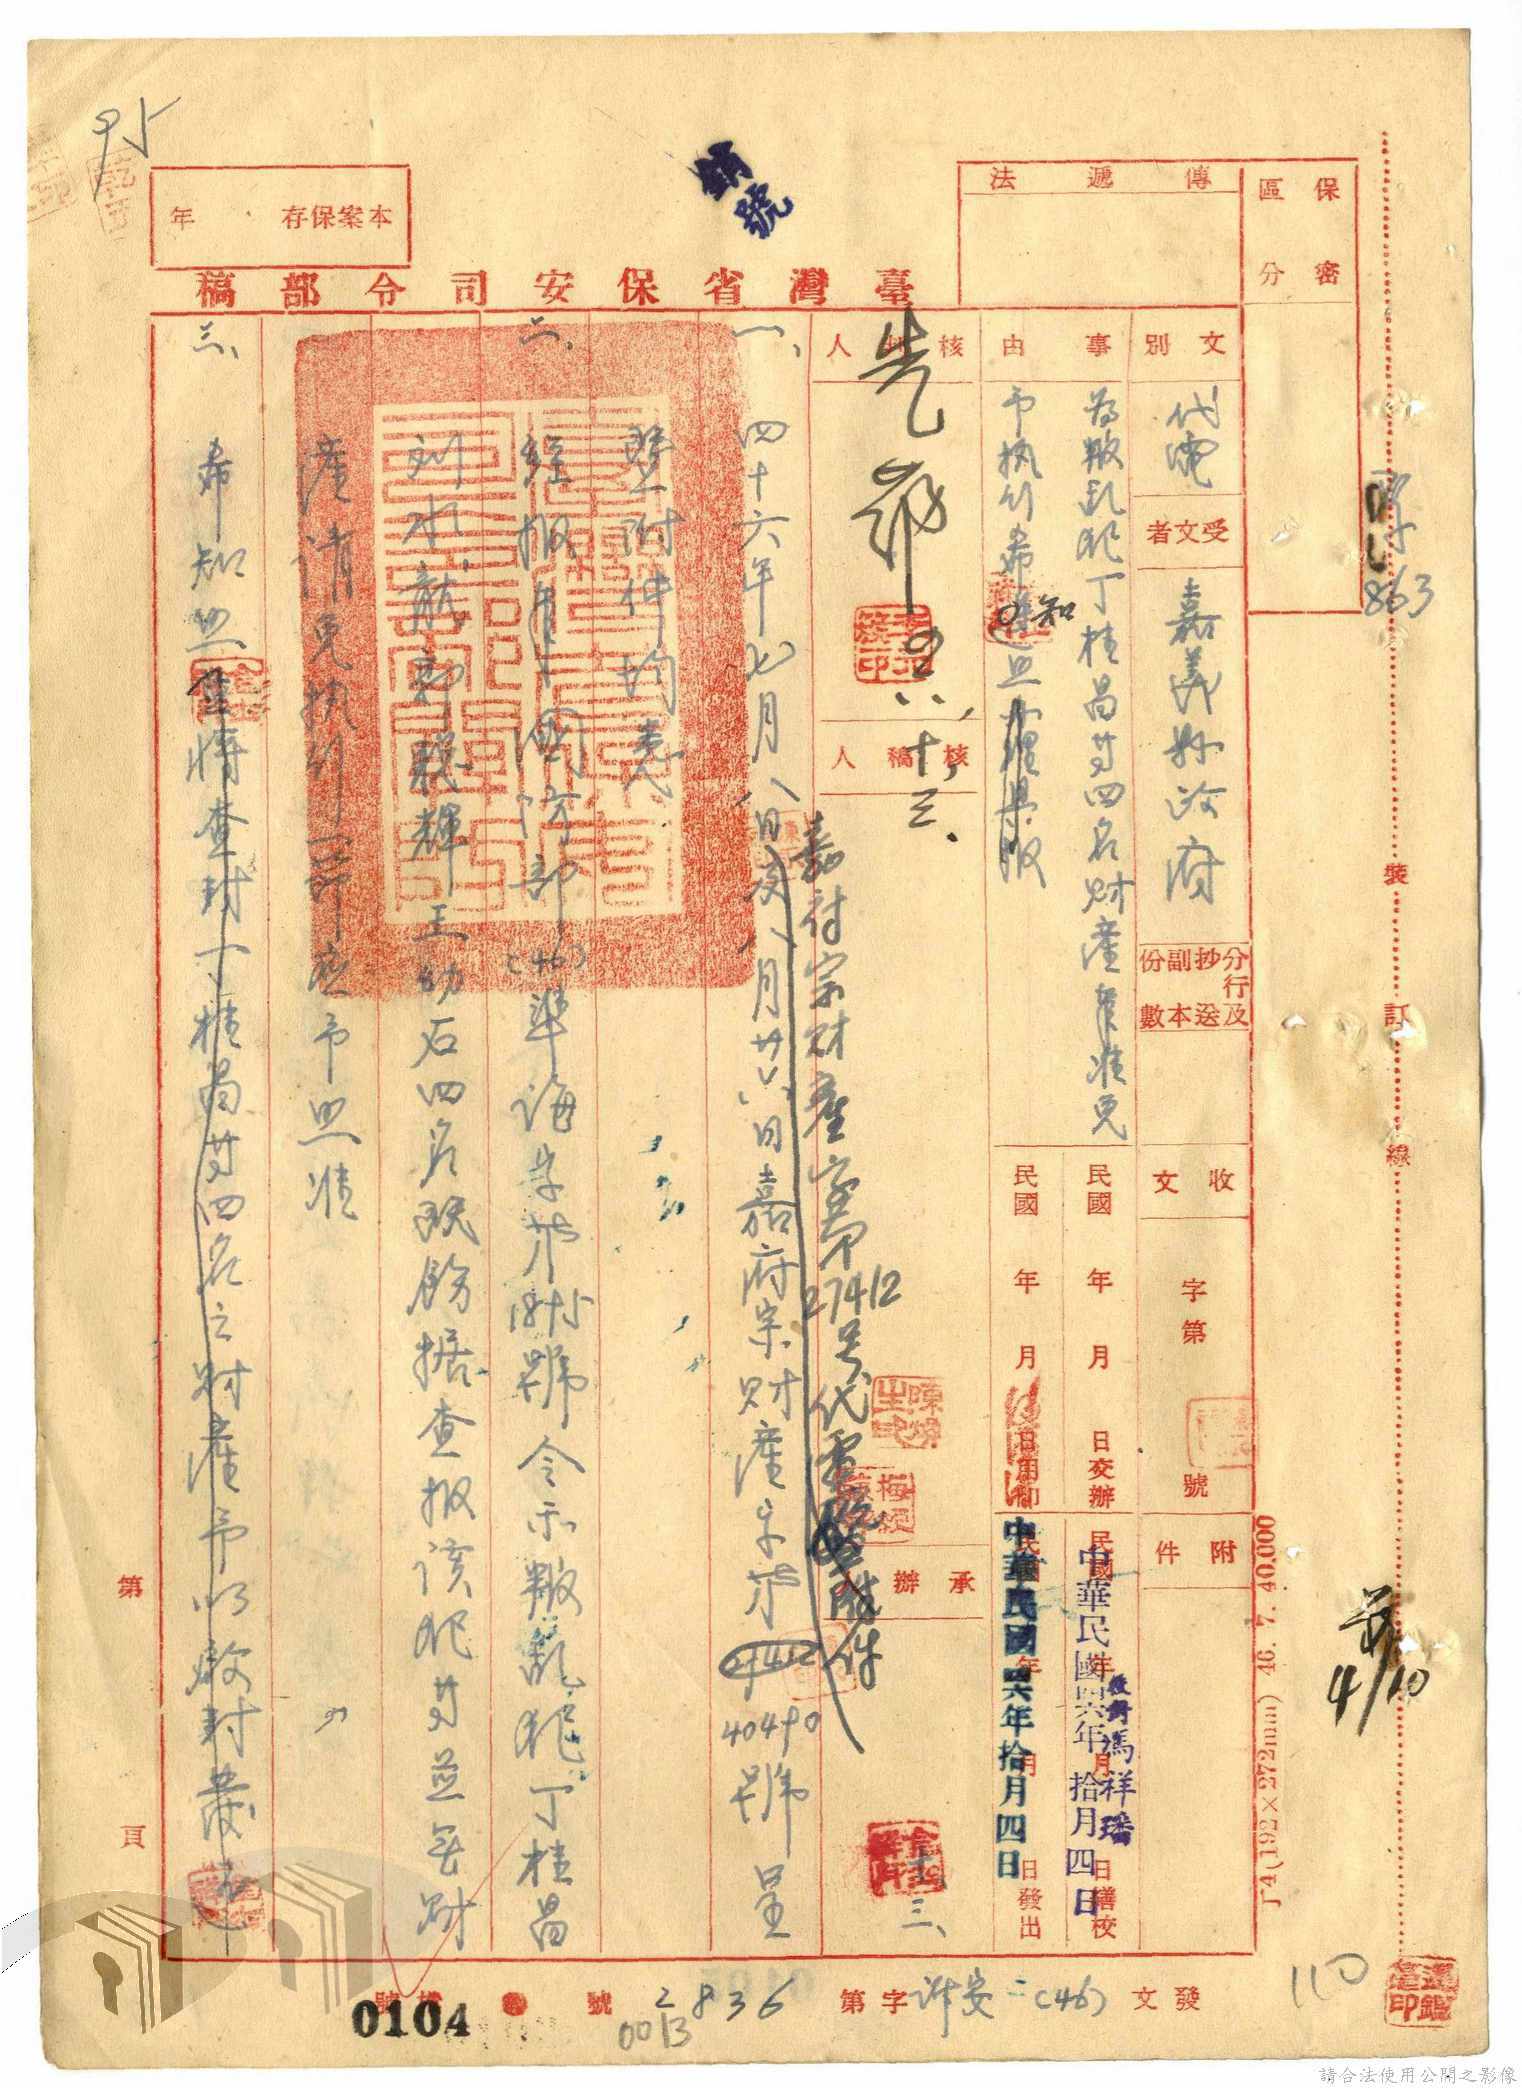 95
銷號
本案保存 年
傳遞法
保密區分
臺灣省保安司令部稿
文別 代電
受文者 嘉義縣政府
分行及抄送副本份數
收文 字第 號
附件
事由 為叛亂犯丁桂昌等四名財產准免
予執行希知照
核判人
核稿人
承辦人
十、三、
民國 年 月 日交辦
民國 年 月 日繕校
中華民國四六年拾月四日
校對馮祥璠
民國 年 月 日用印
民國 年 月 日發出
中華民國四六年拾月四日
嘉府宗財產字第27412号代電暨附件
一、四十六年七月八日及八月廿六日嘉府宗財產字第40490號呈
暨附件均悉
二、經報奉國防部(46)準海字第1895號令示叛亂犯丁桂昌
刘水龍郭聰輝王幼石四名既飭据查报該犯等並無財
產請免執行一節應予照准
三、希知照並將查封丁桂昌等四名之財產予以啟封發還
第 頁
發文 (46) 安 字第 2836 號
0013
檔號
0104
110
863
4/10
裝訂線
T4(192×272mm) 46. 7. 40,000
請合法使用公開之影像